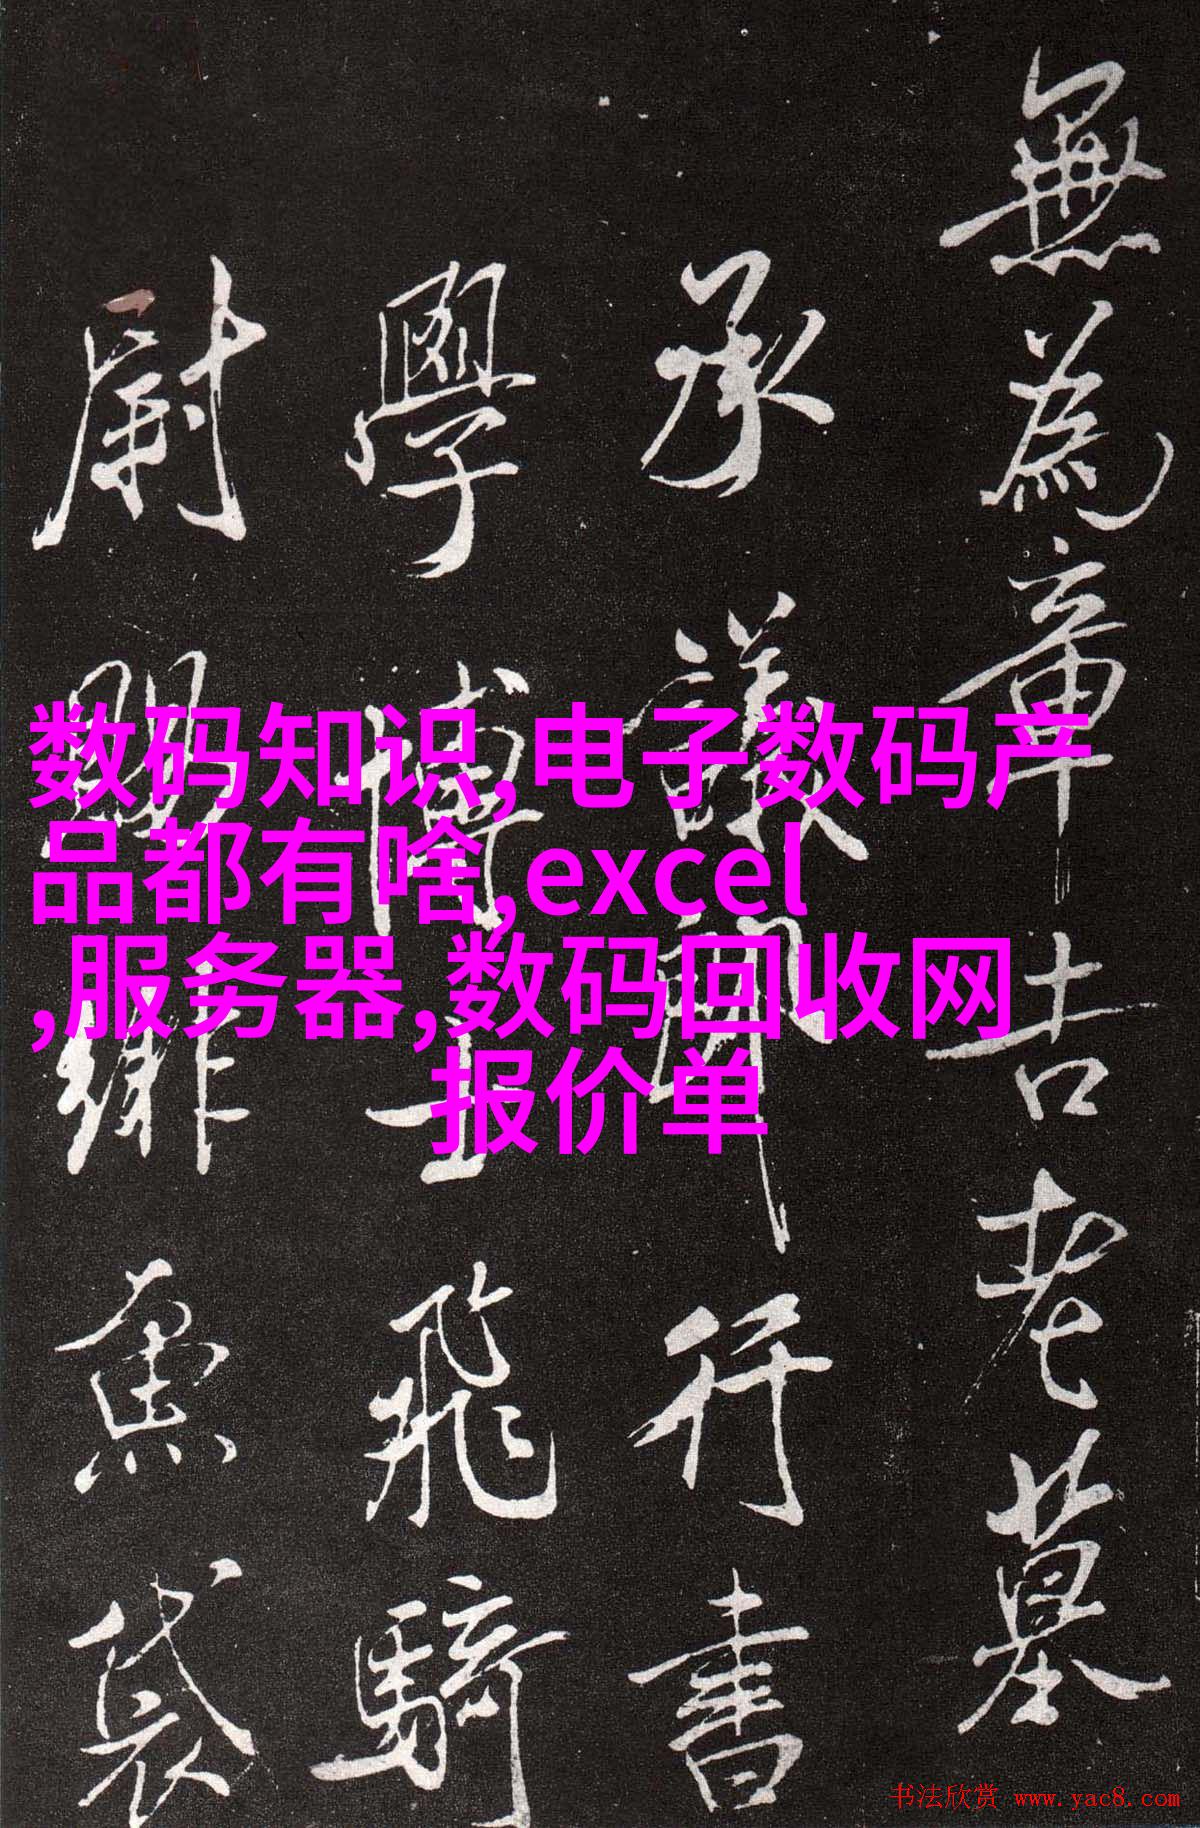 無為章吉老墓
承議郎行書
學博士飛騎
尉賜緋魚袋
数码知识,电子数码产
品都有啥,excel
,服务器,数码回收网
报价单
书法欣赏 www.yac8.com